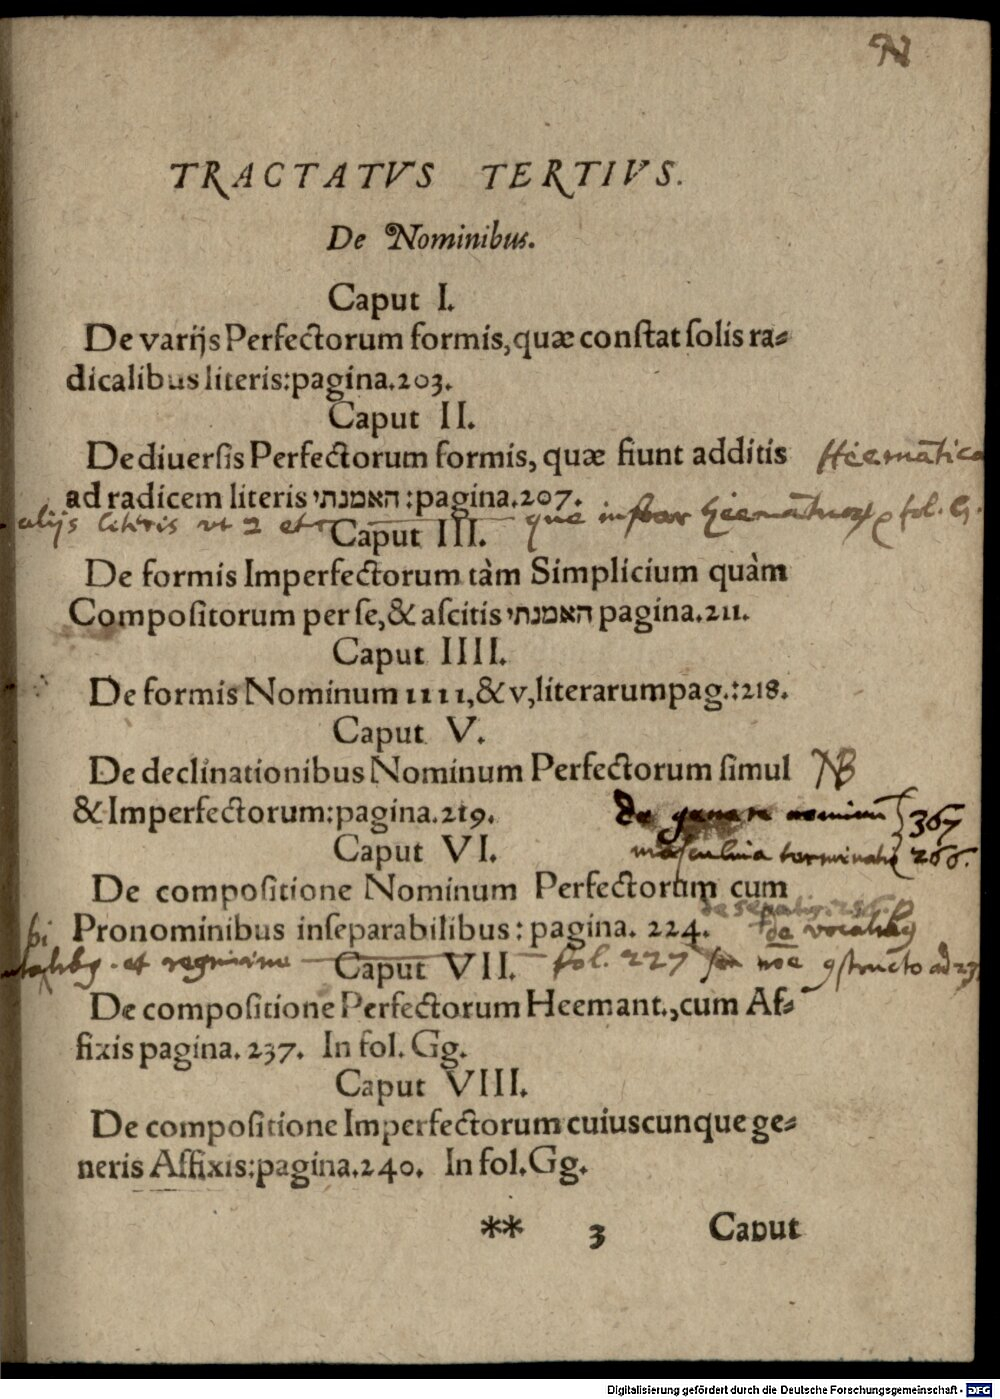 TRACTATVS TERTIVS.
De Nominibus.
Caput I.
De varijs Perfectorum formis, quæ conſtat ſolis ra⸗
dicalibus literis: pagina. 203.
Caput II.
De diuerſis Perfectorum formis, quæ fiunt additis Heemātica
ad radicem literis האמנתי: pagina. 207.
alijs literis vt
Caput III.
De formis Imperfectorum tàm Simplicium quàm
Compoſitorum per ſe, & aſcitis האמנתי pagina. 211.
Caput IIII.
De formis Nominum IIII, & v, literarum pag.: 218.
Caput V.
De declinationibus Nominum Perfectorum ſimul NB
& Imperfectorum: pagina. 219. de genere nominū 367
Caput VI. maſculina 266.
De compoſitione Nominum Perfectorum cum
Pronominibus inſeparabilibus: pagina. 224.
et regimine Caput VII. fol. 227
De compoſitione Perfectorum Heemant., cum Af⸗
fixis pagina. 237. In fol. Gg.
Caput VIII.
De compoſitione Imperfectorum cuiuscunque ge⸗
neris Affixis: pagina. 240. In fol. Gg.
** 3 Caput
Digitalisierung gefördert durch die Deutsche Forschungsgemeinschaft - DFG